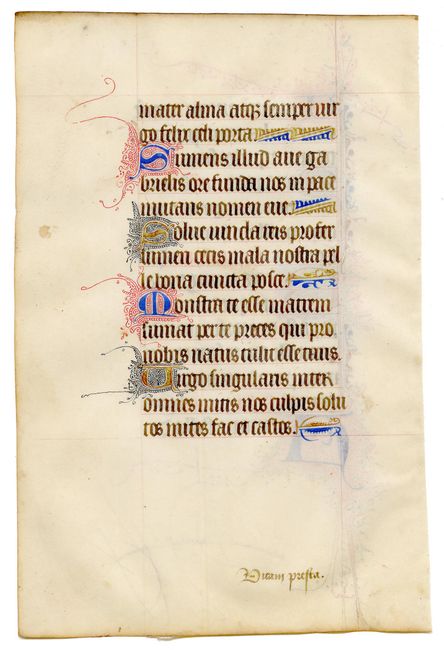 mater alma atqz semper uir
go felix celi porta
Sumens illud aue ga
brielis ore funda nos in pace
mutans nomen eue.
Solue uincla reis profer
lumen cecis mala nostra pel
le bona cuncta posce.
Monstra te esse matrem
sumat per te preces qui pro
nobis natus tulit esse tuus.
Uirgo singularis inter
omnes mitis nos culpis solu
tos mites fac et castos.
Vitam presta.